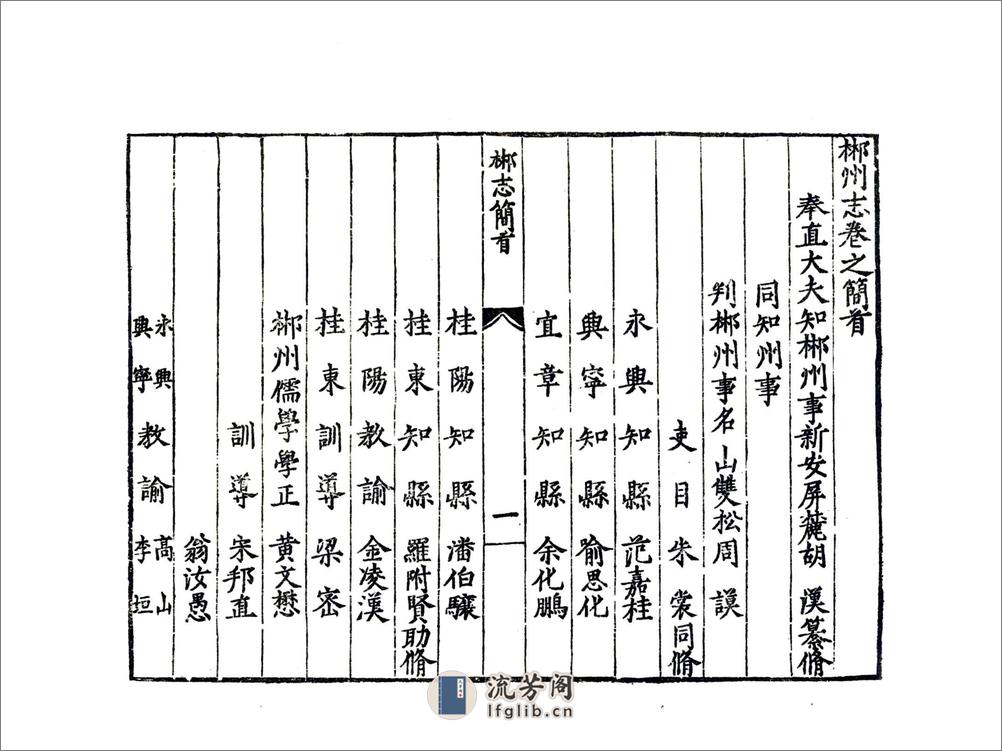 郴州志卷之簡首
奉直大夫知郴州事新安屏麓胡漢纂脩
同知州事
判郴州事名山雙松周謨
吏目朱裳同脩
永興知縣范嘉桂
興寧知縣喻思化
宜章知縣余化鵬
郴志簡首
一
桂陽知縣潘伯驤
桂東知縣羅附賢助脩
桂陽教諭金凌漢
桂東訓導梁密
郴州儒學學正黃文懋
訓導宋邦直
翁汝愚
永興
興寧
教諭
高山
李垣
流芳阁
lfglib.cn